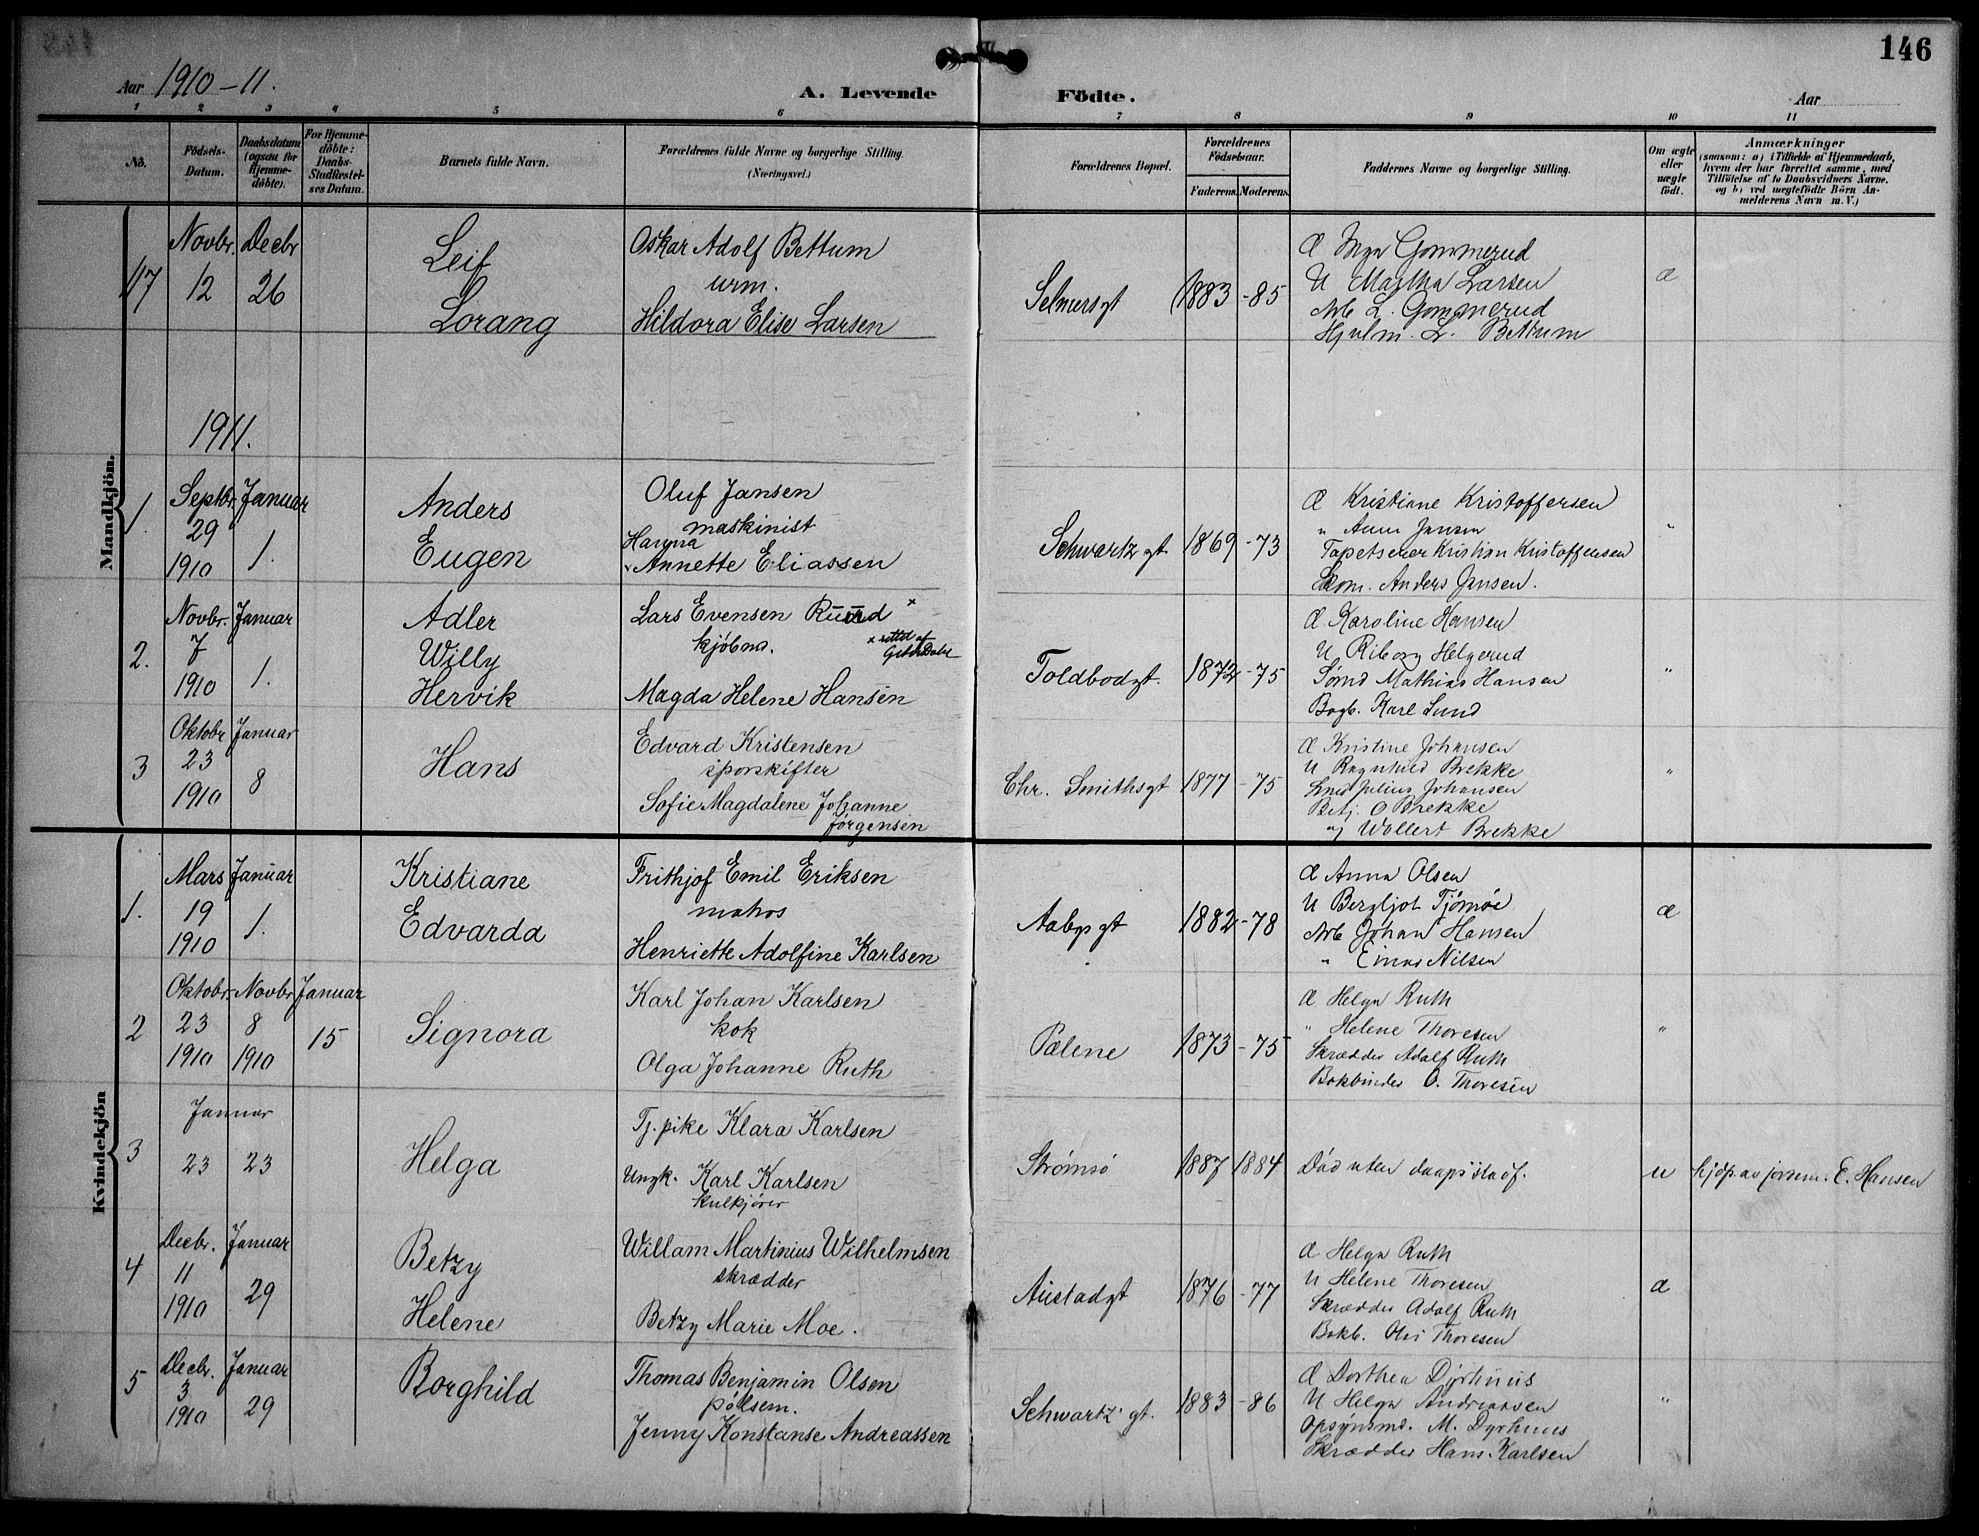 146
Aar 1910-11.
A. Levende Födte.
Aar
1 2 3 4 5 6 7 8 9 10 11
No.
Födsels-Datum.
Daabsdatum (ogsaa for Hjemme-döbte).
For Hjemme-döbte: Daabs-Stadfæstel-ses Datum.
Barnets fulde Navn.
Forældrenes fulde Navne og borgerlige Stilling. (Næringsvei.)
Forældrenes Bopæl.
Forældrenes Födselsaar.
Faderens. Moderens.
Faddernes Navne og borgerlige Stilling.
Om ægte eller uægte födt.
Anmærkninger
(saasom: a) i Tilfælde af Hjemmedaab,
hvem der har forrettet samme, med
Tilföielse af to Daabsvidners Navne,
og b) ved uægtefödte Börn An-
melderens Navn m. V.)
Mandkjön.
117
Novbr. 12
Decbr 26
Leif
Lorang
Oskar Adolf Bettum
urm.
Hildora Elise Larsen
Selmersgt
1883 -85
Æ Inga Gommerud
U Martha Larsen
Arb L. Gommerud
Hjulm. L. Bettum
æ
1911.
1.
Septbr. 29 1910
Januar 1.
Anders
Eugen
Oluf Jansen
maskinist
Hanna
Annette Eliassen
Schwartz gt.
1869 -73
Æ Kristiane Kristoffersen
" Anna Jansen
Tapetserer Kristian Kristoffersen
Anders Jansen.
"
2.
Novbr. 7 1910
Januar 1.
Adler
Willy
Hervik
Lars Evensen Ruud x
kjöbm.
x rettet af
Magda Helene Hansen
Toldbodgt.
1872 -75
Æ Karoline Hansen
U. Riborg Helgerud
Sømd Mathias Hansen
Bogb. Karl Lund
"
3
Oktobr 23 1910
Januar 8
Hans
Edvard Kristensen
sporskifter
Sofie Magdalene Johanne
Jørgensen
Chr. Smithsgt
1877 -75
Æ Kristine Johansen
U Ragnhild Brekke
Julius Johansen
Betj. O Brekke
og Wollert Brekke
"
Kvindekjön
1.
Mars 19 1910
Januar 1.
Kristiane
Edvarda
Frithjof Emil Eriksen
matros
Henriette Adolfine Karlsen
Aabygt
1882 -78
Æ Anna Olsen
U Bergljot Tjømøe
Arb Johan Hansen
" Einar Nilsen
æ
2
Oktobr. 23 1910
Novbr 8 1910
Januar 15
Signora
Karl Johan Karlsen
kok
Olga Johanne Ruth
Pælene
1873 -75
Æ Helga Ruth
" Helene Thoresen
Skrædder Adolf Ruth
Bokbinder O. Thoresen
"
3
Januar
23 23
Helga
Tj. pike Klara Karlsen
Ungk. Karl Karlsen
kulkjører
Strømsø
1887 1884
Död uten daapsstadf.
u
hjdp av jorem. E. Hansen
4
Decbr. 11 1910
Januar 29
Betzy
Helene
Willam Martinius Wilhelmsen
skrædder
Betzy Marie Moe.
Austadgt
1876 -77
Æ Helga Ruth
U Helene Thoresen
Skrædder Adolf Ruth
Bokb. Thoresen
æ
5
Decbr. 3 1910
Januar 29
Borghild
Thomas Benjamin Olsen
pølsem.
Jenny Konstanse Andreassen
Schwartz gt.
1883 -86
Æ Dorthea Dyrhuus
U Helga Andreassen
Opsynsmd. M. Dyrhuus
Skrædder Hans Karlsen
"